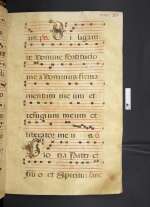 Diligam
te Domine fortitudo
me a Dominus firma
mentum meum et
refugium meum et
liberator me us
Glo ria Patri et
fili o et Spiritui sanc